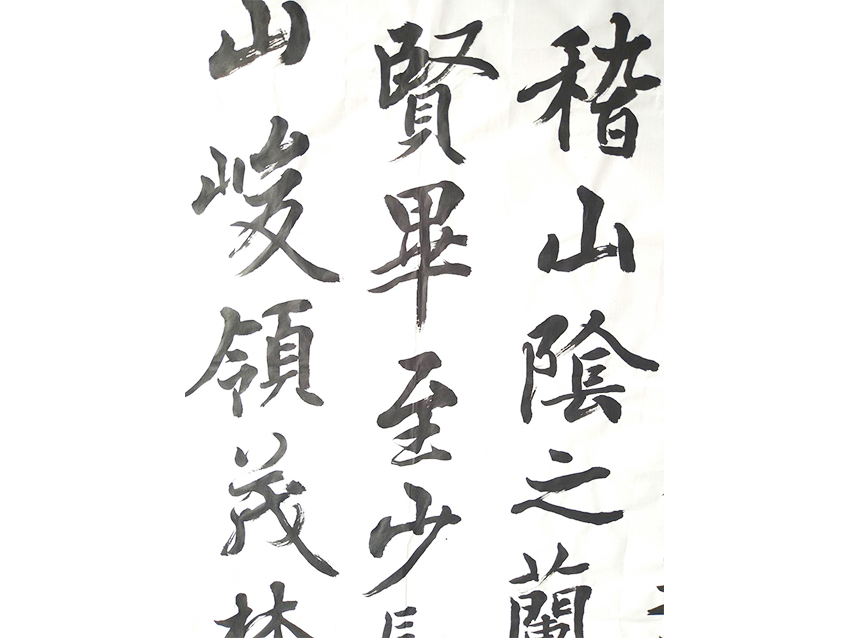 稽山陰之蘭
賢畢至少長
山峻領茂林